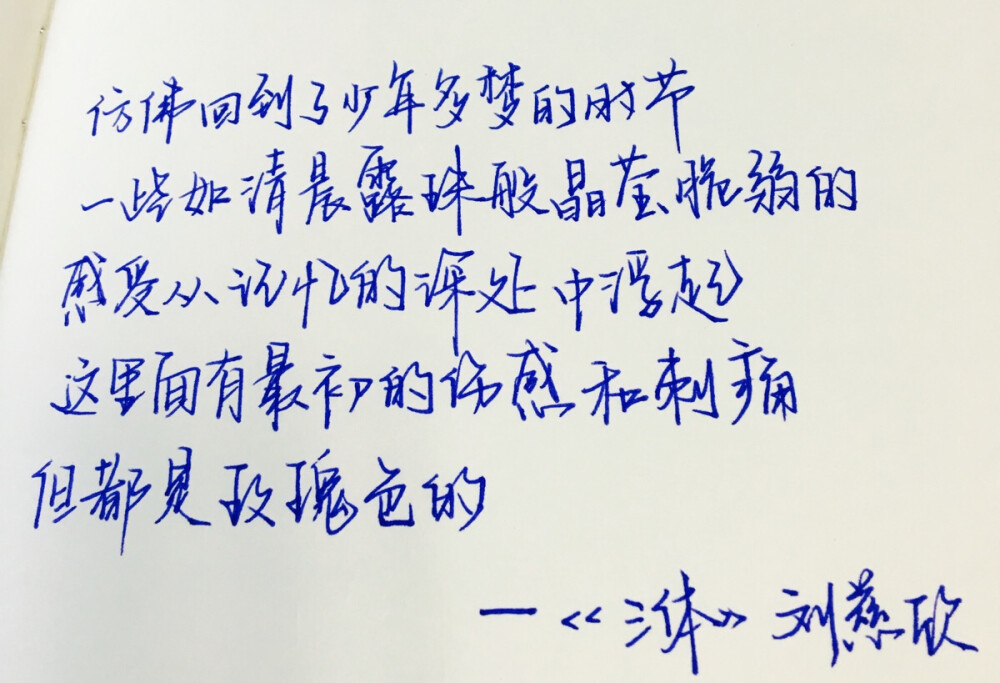 仿佛回到了少年多梦的时节
一些如清晨露珠般晶莹脆弱的
感受从记忆的深处中浮起
这里面有最初的伤感和刺痛
但都是玫瑰色的
—《三体》刘慈欣